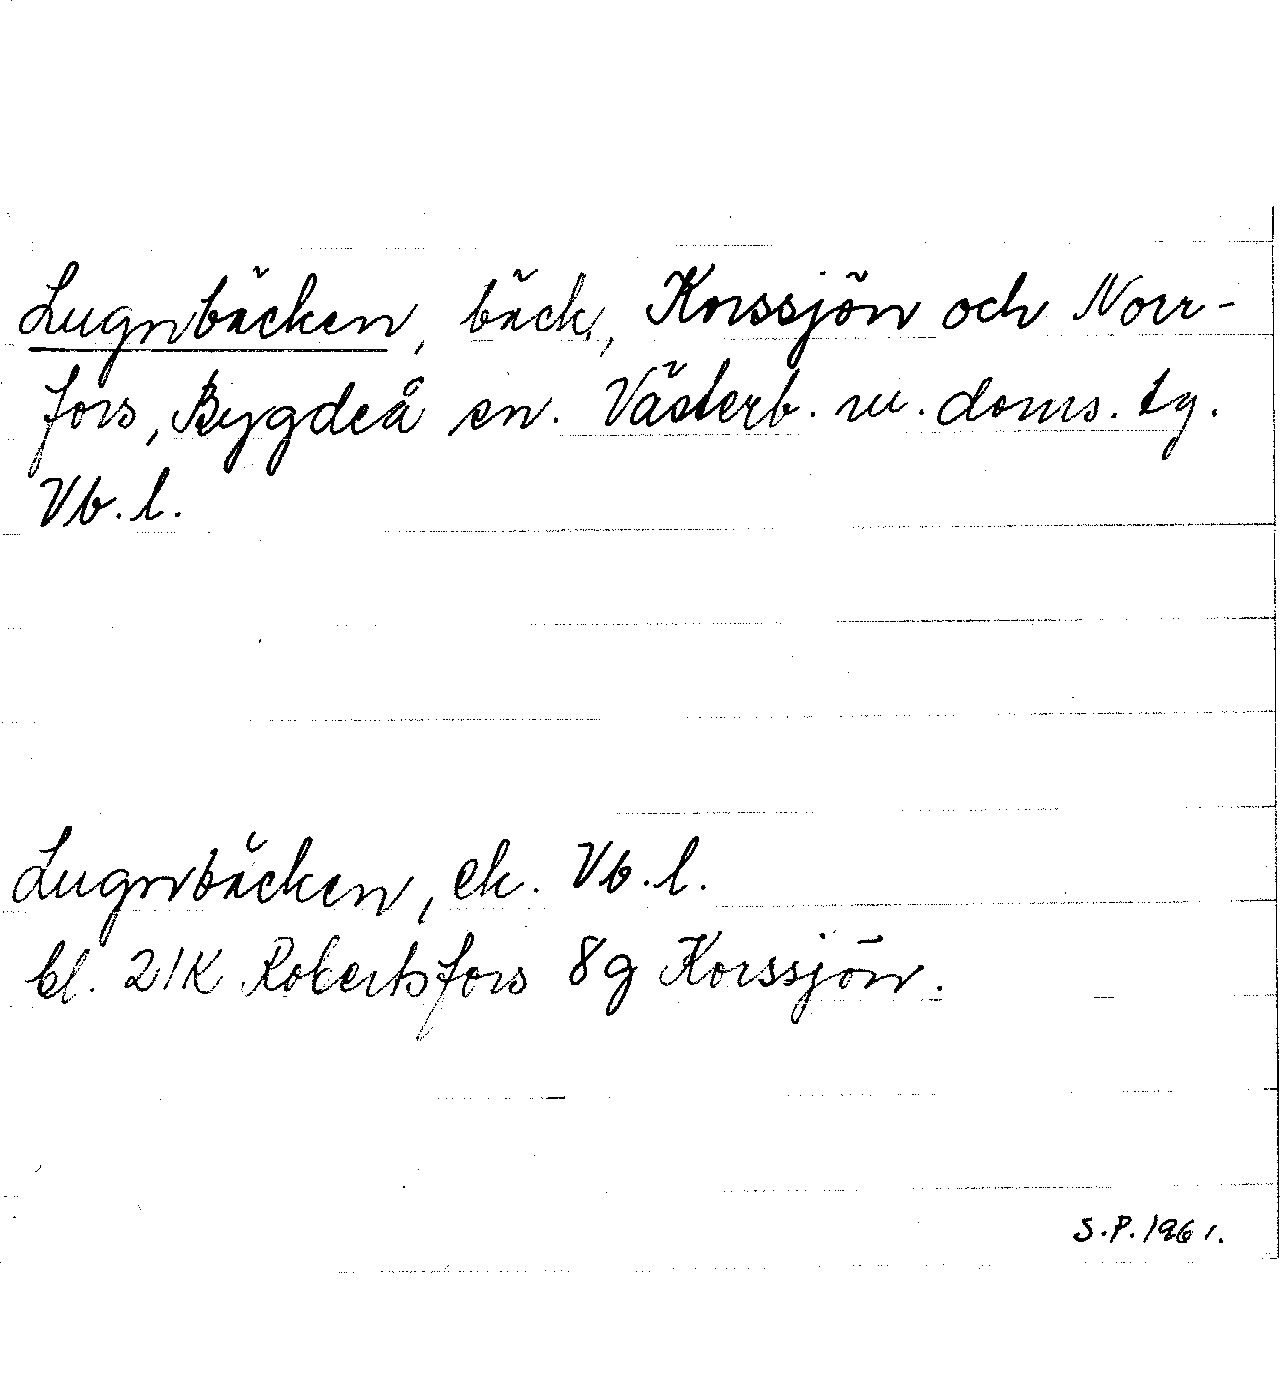 Lugnbäcken, bäck, Korssjön och Norr-
fors, Bygdeå sn. Västerb. m. doms. tg.
Vb. l.
Lugnbäcken, ek. Vb. l.
bl. 21K Robertsfors 8g Korssjön.
S.P. 1961.